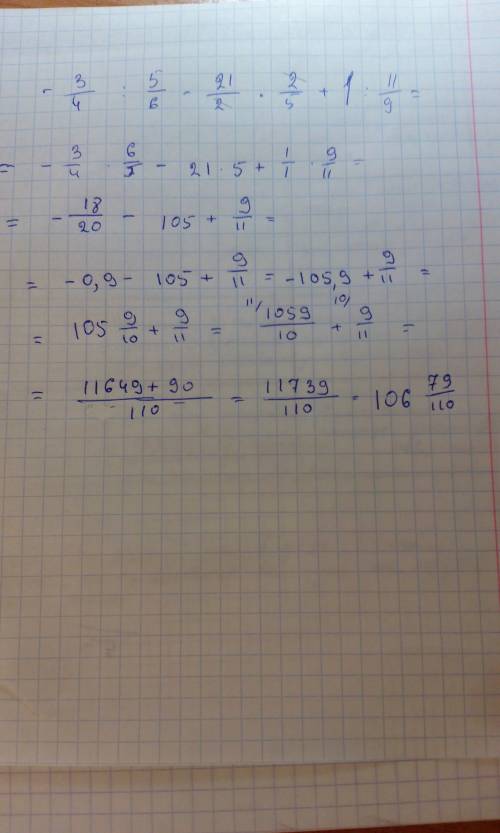 - 3/4 : 5/6 - 21/2 · 2/5 + 1 : 11/9 =
= - 3/4 · 6/5 - 21 · 5 + 1/1 · 9/11 =
= - 18/20 - 105 + 9/11 =
= -0,9 - 105 + 9/11 = -105,9 + 9/11 =
= 105 9/10 + 9/11 = 11/ 1059/10 + 10/ 9/11 =
= 11649 + 90/110 = 11739/110 - 106 79/110